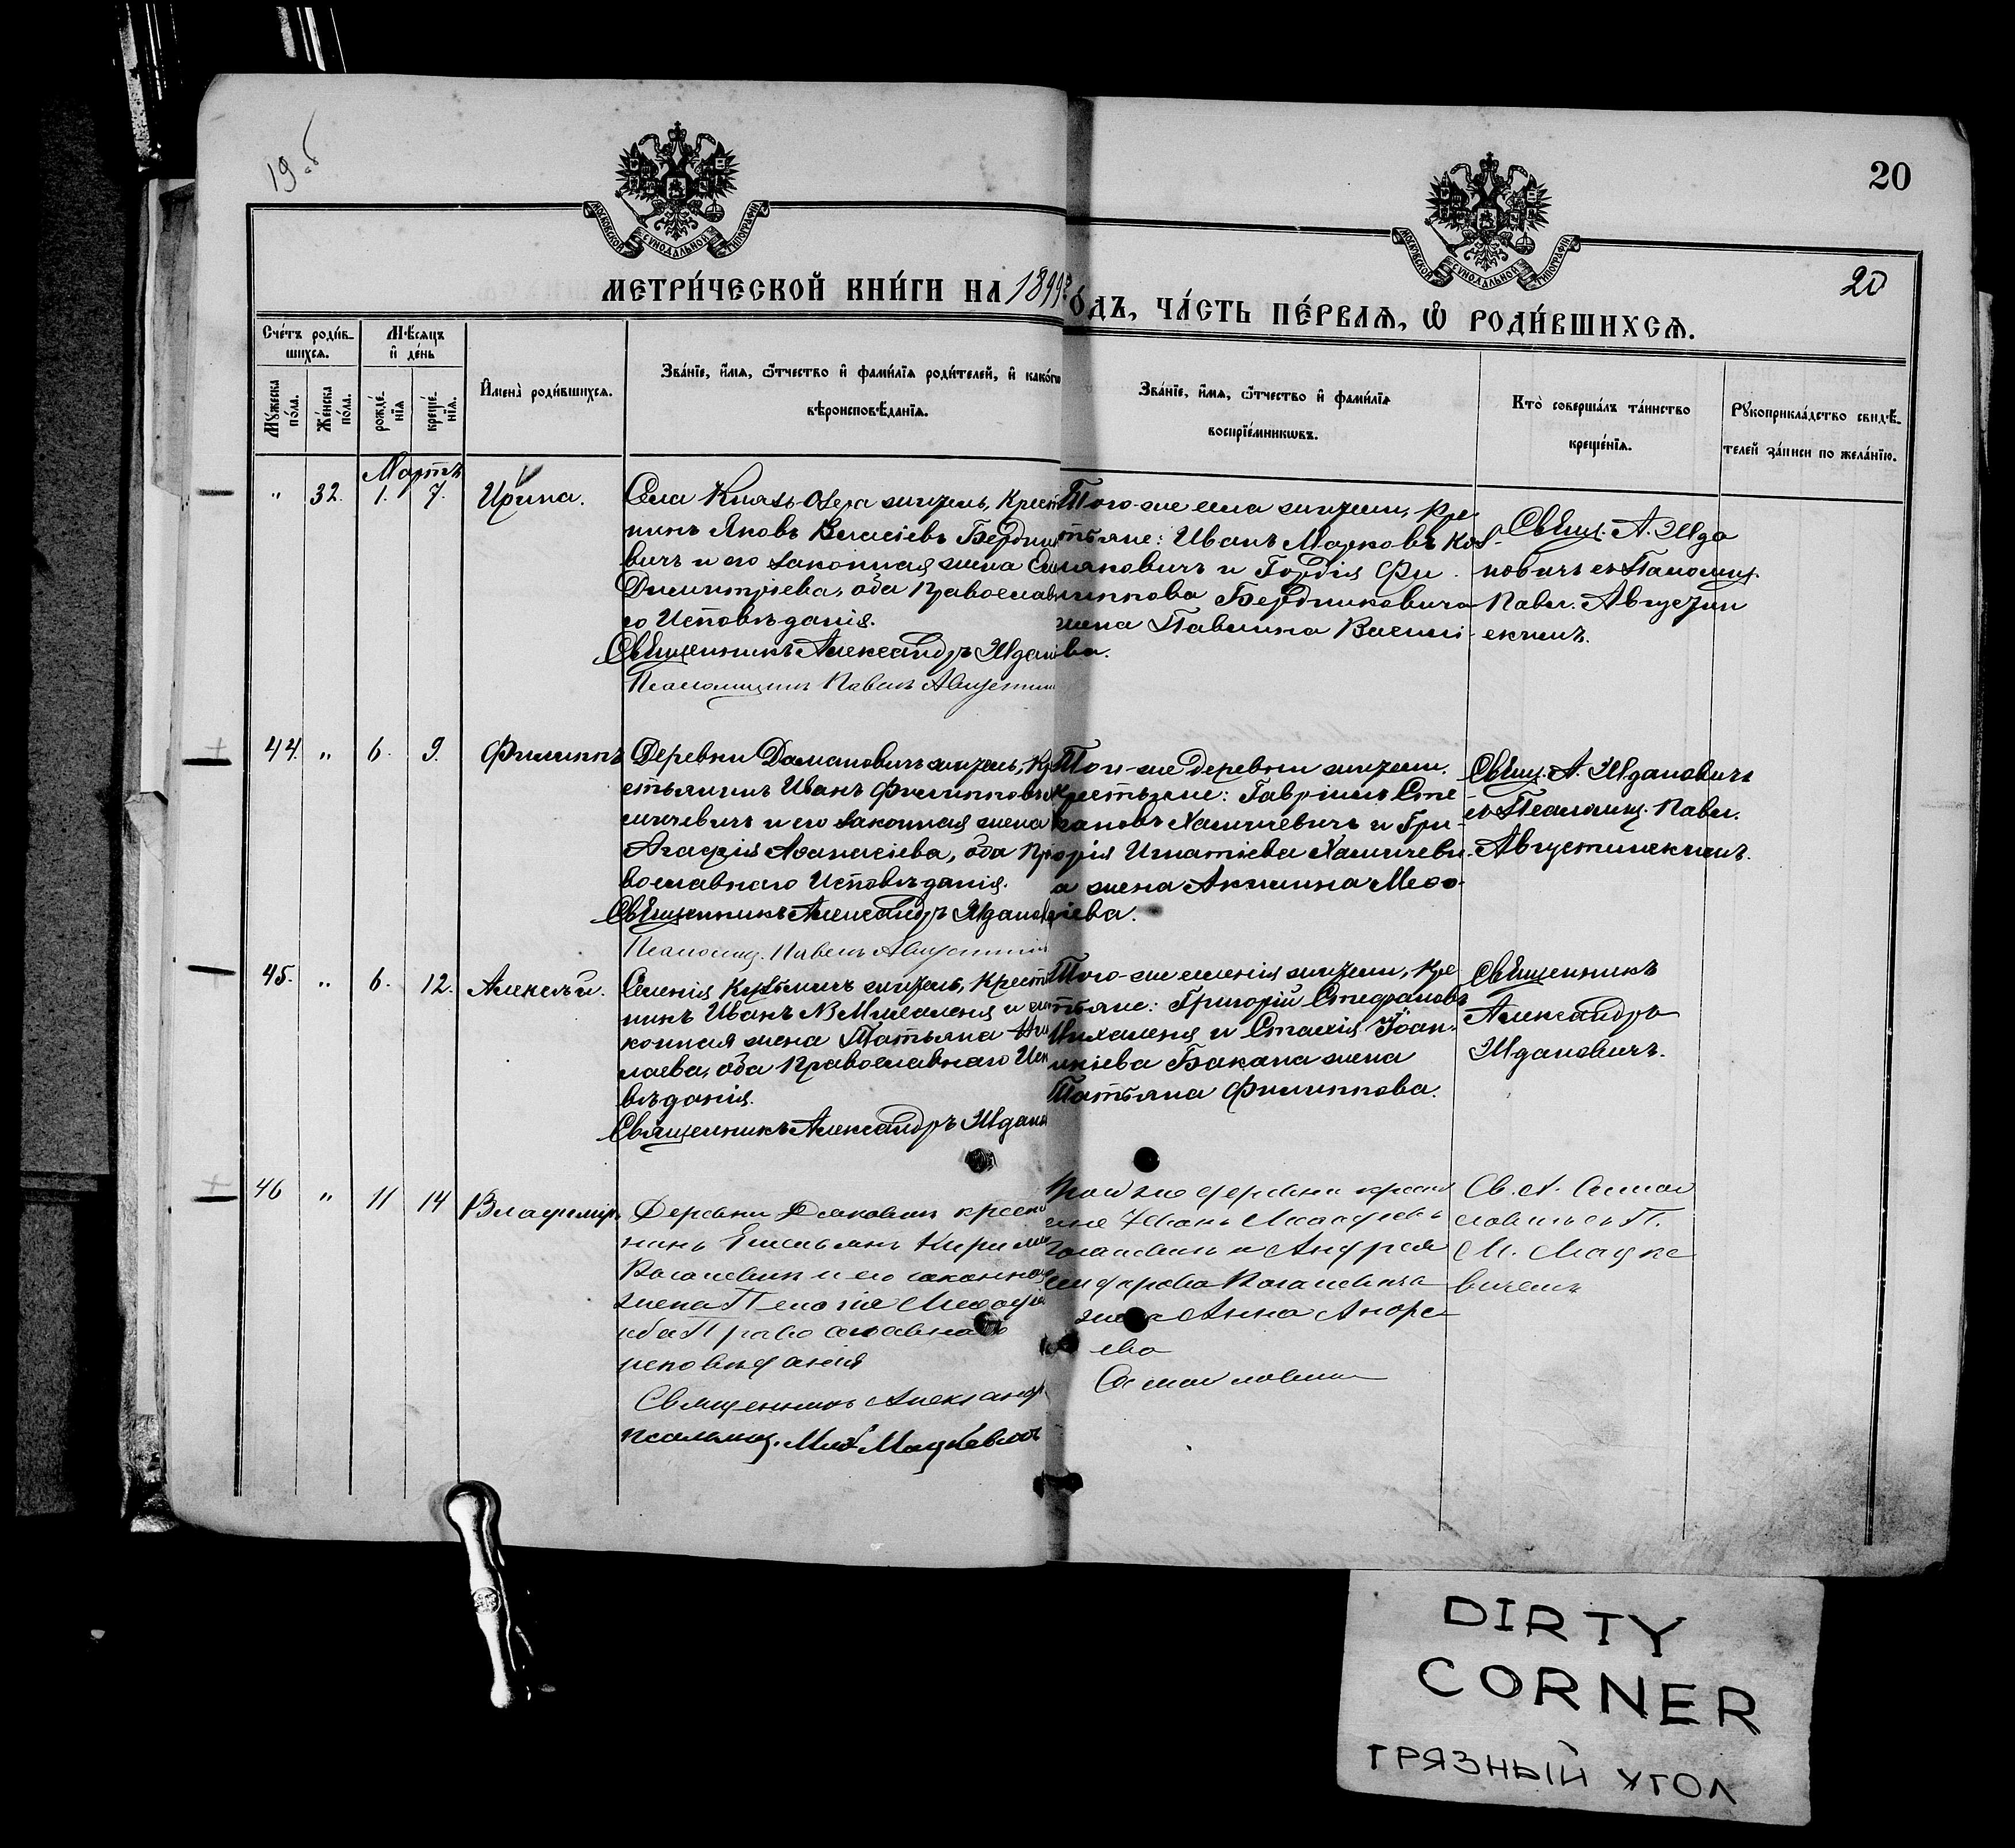 19 об
20
МОСКОВСКОЙ СѴНОДАЛЬНОЙ ТИПОГРАФІИ
МОСКОВСКОЙ СѴНОДАЛЬНОЙ ТИПОГРАФІИ
МЕТРИ́ЧЕСКОЙ КНИ́ГИ НА 1899 г
О́ДЪ, ЧА́СТЬ ПЕ́РВАѦ, Ѽ РОДИ́ВШИХСѦ.
20
Сче́тъ роди́в-
шихсѧ.
Мѣсяцъ
и҆ де́нь
Мꙋ́жеска по́ла.
Же́нска по́ла.
рожде́нїѧ
креще́нїѧ.
И҆мена̀ роди́вшихсѧ.
Зва́нїе, и҆́мѧ, ѻ҆́тчество и҆ фами́лїѧ роди́телей, и҆ како́гѡ
вѣроисповѣданїѧ.
Зва́нїе, и҆́мѧ, ѻ҆́тчество и҆ фами́лїѧ
воспрїе́мникѡвъ.
Кто̀ соверша́лъ та́инство
креще́нїѧ.
Рꙋкоприкла́дство свидѣ-
телей за́писи по жела́нїю.
Мартъ
" 32. 1. 7. Ирина.
Села Князь-Озера житель, Крест
нинъ Яковъ Власіевъ Бердни
вичъ и его законная жена
Димитріева, оба Православ
го Исповѣданія.
Священникъ Александръ Ждан
Псаломщикъ Павелъ Августин
Того-же села жители, кре
тьяне: Иванъ Марковъ
и Гордія Фи
липпова Бердниковича
жена Павлина Васили
ва.
Свящ. А. Жда
новичъ съ Псаломщ.
Павл. Августин
скимъ.
44. " 6. 9. Филиппъ
Деревни Дамановичъ житель, Кр
стьянинъ Иванъ Филипповъ
личевичъ и его законная жена
Агафія Аѳанасіева, оба Пр
вославнаго Исповѣданія.
Священникъ Александръ Жданов
Псаломщ. Павелъ Августин
Той-же деревни жители.
крестьяне: Гавріилъ Сте
пановъ Халичевичъ и Гри
горія Игнатіева Халичеви
а жена Акилина Меѳо
діева.
Свящ. А. Ждановичъ
съ Псаломщ. Павл.
Августинскимъ.
45. " 6. 12. Алексѣй.
Селенія житель, Крест
нинъ Иванъ Михаленя и
конная жена Татьяна Ни
лаева, оба Православнаго Исп
вѣданія.
Священникъ Александръ Ждан
Того-же селенія жители, кре
тьяне: Григорій Стефановъ
Михаленя и Стахія Іоан
икіева Бакана жена
Татьяна Филиппова.
Священникъ
Александръ
Ждановичъ.
46 " 11 14 Владиміръ
Деревни крест
нинъ Емельянъ Кирил
и его законная
жена Пелагія Меѳодіе
оба Православнаго
исповѣданія
Священникъ Александръ
псаломщ. Мих Мацкевичъ
Той же деревни крест
яне Иванъ
и Андрея
жена Анна Андре
ева
Св. А.
съ П.
М. Мацке
вичемъ
DIRTY
CORNER
ГРЯЗНЫЙ УГОЛ